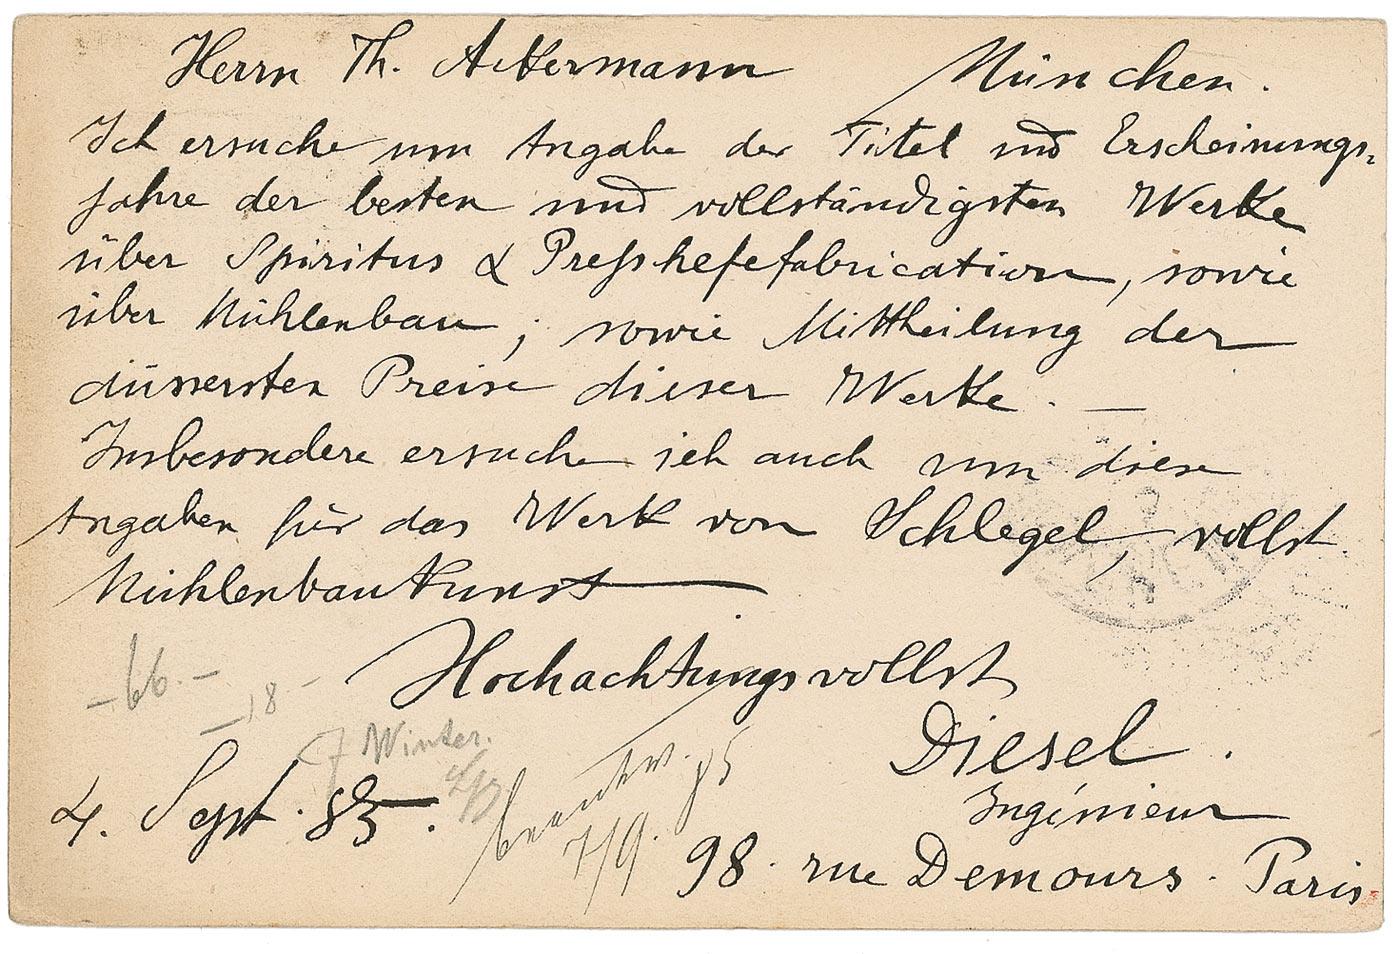 Herrn Th. Ackermann München.
Ich ersuche um Angabe der Titel und Erscheinungs-
jahre der besten und vollständigsten Werke
über Spiritus & Preßshefefabrication, sowie
über Mühlenbau; sowie Mittheilung der
äussersten Preise dieser Werke. —
Insbesondere ersuche ich auch um diese
Angaben für das Werk von Schlegel, vollst.
Mühlenbaukunst
Hochachtungsvollst
Diesel.
Ingénieur
98. rue Demours. Paris.
4. Sept. 85.
– 66. –
– 18 –
7 Winter.
beantw.
7/9. 85